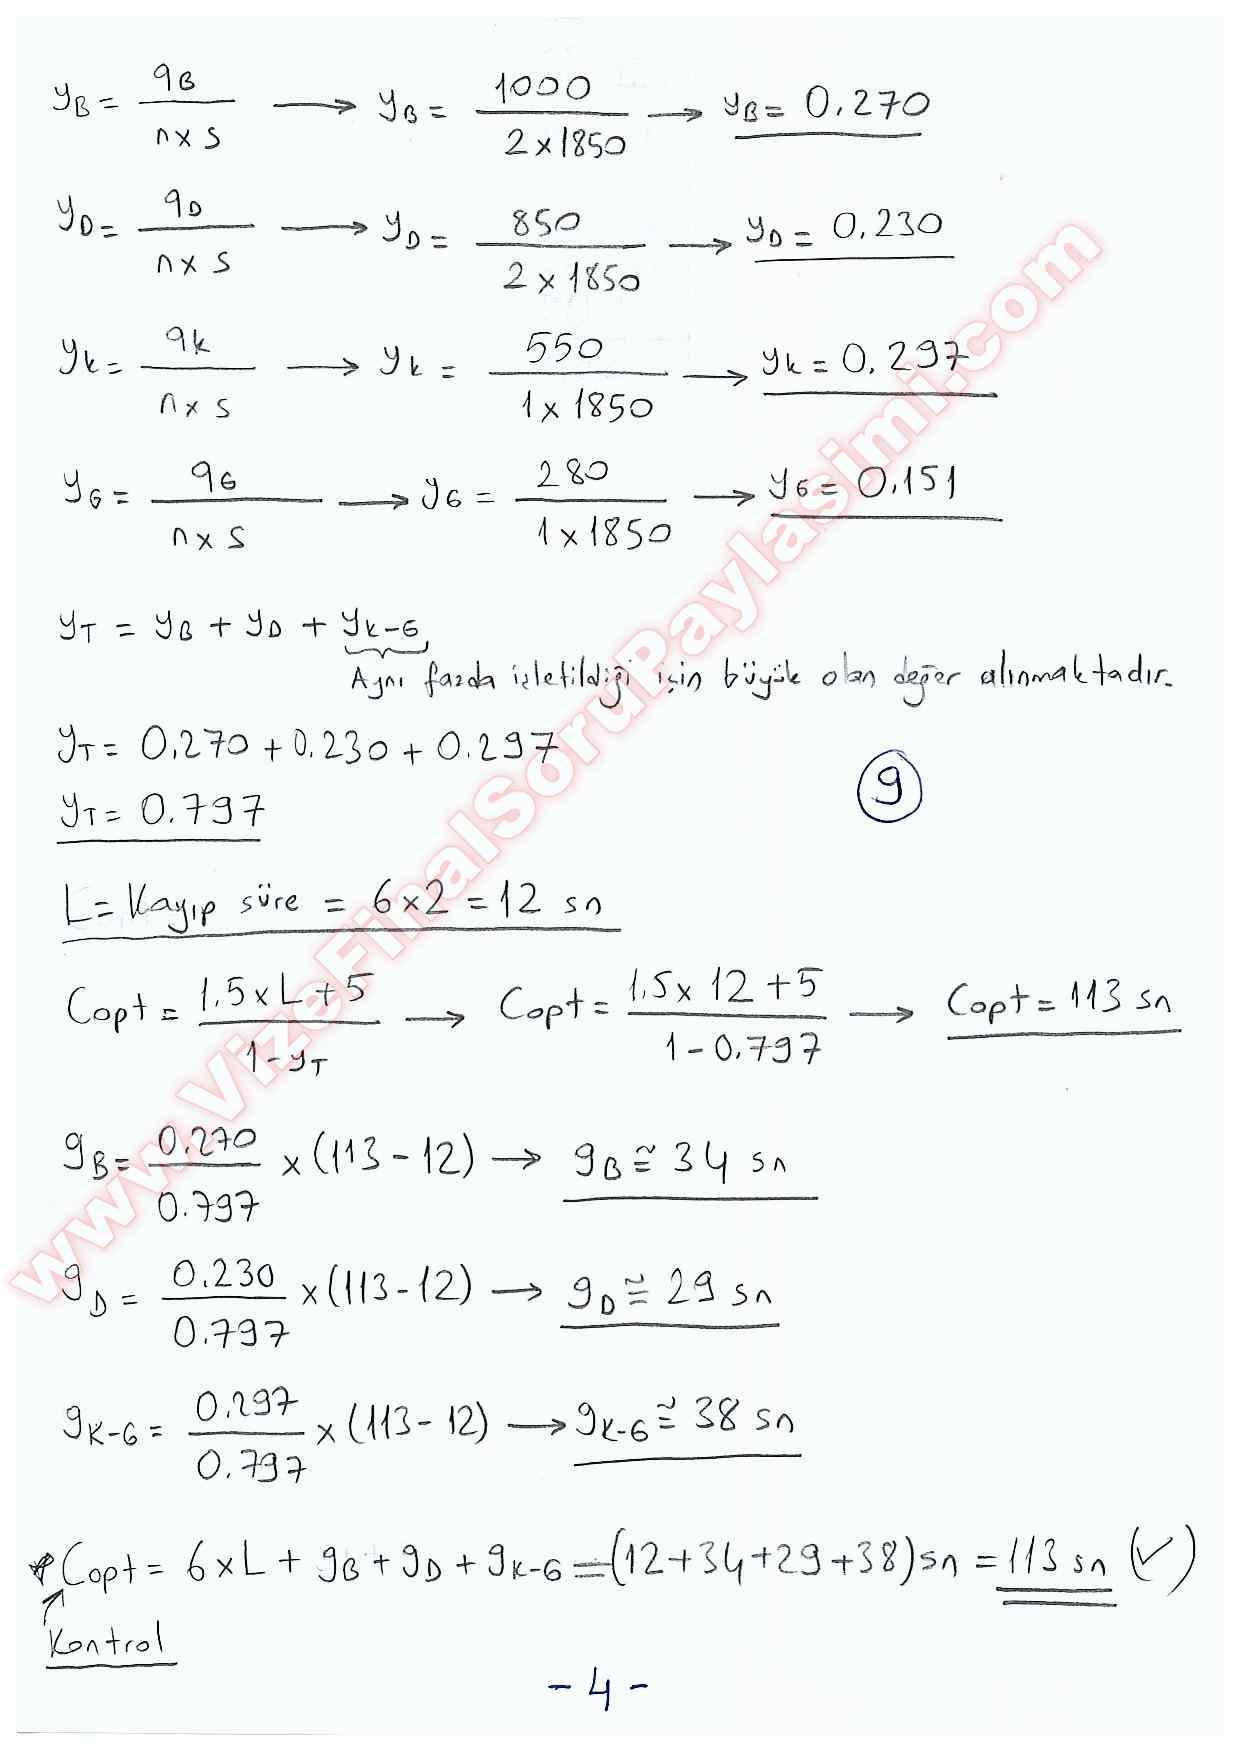 yB = qB / n x s → yB = 1000 / 2 x 1850 → yB = 0.270
yD = qD / n x s → yD = 850 / 2 x 1850 → yD = 0.230
yk = qk / n x s → yk = 550 / 1 x 1850 → yk = 0.297
yG = qG / n x s → yG = 280 / 1 x 1850 → yG = 0.151
yT = yB + yD + yK-G
Aynı fazda işletildiği için büyük olan değer alınmaktadır.
yT = 0.270 + 0.230 + 0.297
9
yT = 0.797
L = Kayıp süre = 6x2 = 12 sn
Copt = 1.5 x L + 5 / 1 - yT → Copt = 1.5 x 12 + 5 / 1 - 0.797 → Copt = 113 sn
gB = 0.270 / 0.797 x (113 - 12) → gB ≅ 34 sn
gD = 0.230 / 0.797 x (113 - 12) → gD ≅ 29 sn
gK-G = 0.297 / 0.797 x (113 - 12) → gK-G ≅ 38 sn
Copt = 6 x L + gB + gD + gK-G = (12+34+29+38) sn = 113 sn (✓)
Kontrol
- 4 -
www.VizeFinalSoruPaylasimi.com